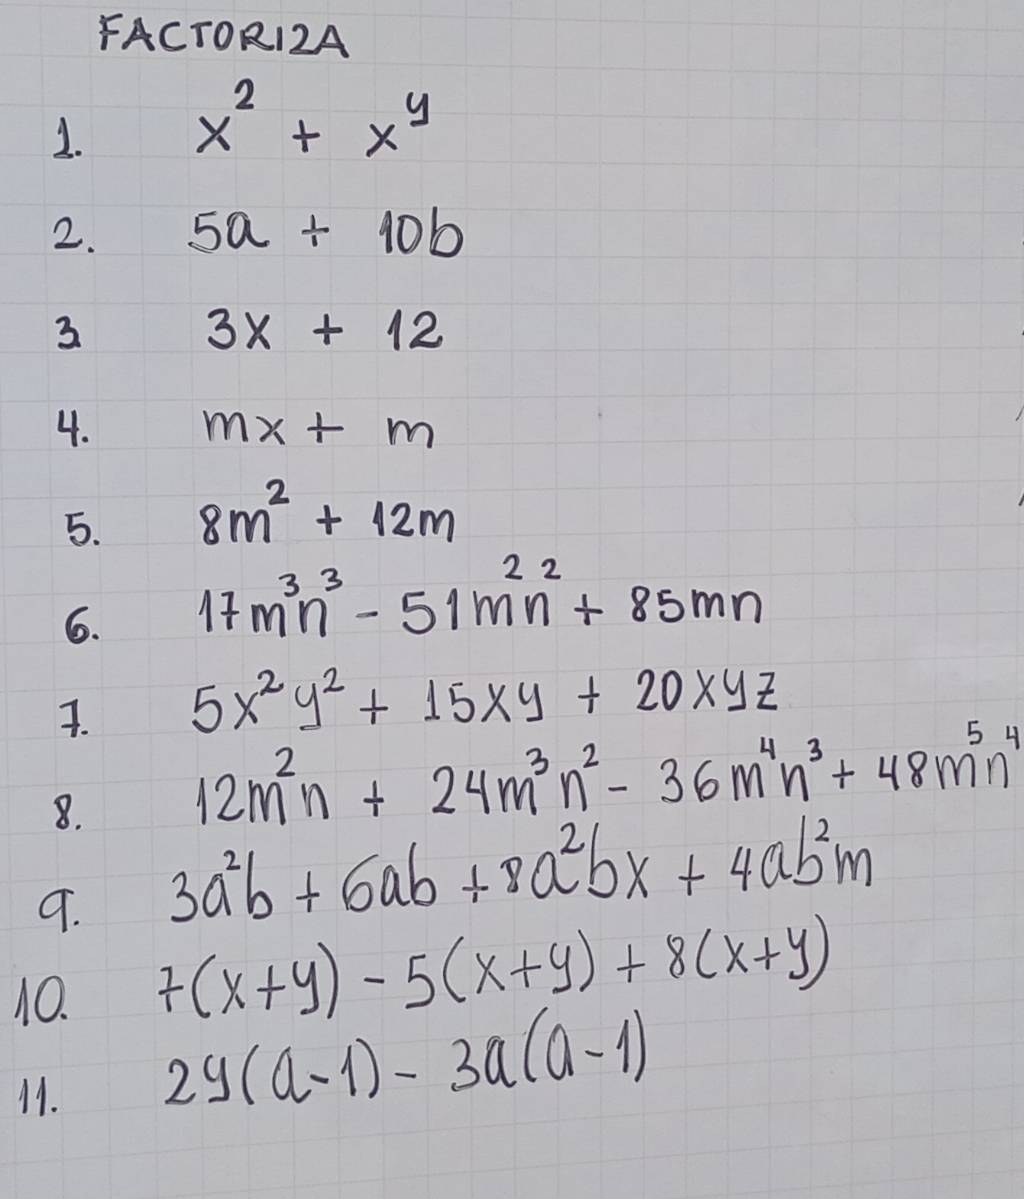 FACTORIZA
1. x² + x^y
2. 5a + 10b
3 3x + 12
4. mx + m
5. 8m² + 12m
6. 17m³n³ - 51m²n² + 85mn
7. 5x²y² + 15xy + 20xyz
8. 12m²n + 24m³n² - 36m⁴n³ + 48m⁵n⁴
9. 3a²b + 6ab + 8a²bx + 4ab²m
10. 7(x+y) - 5(x+y) + 8(x+y)
11. 2y(a-1) - 3a(a-1)